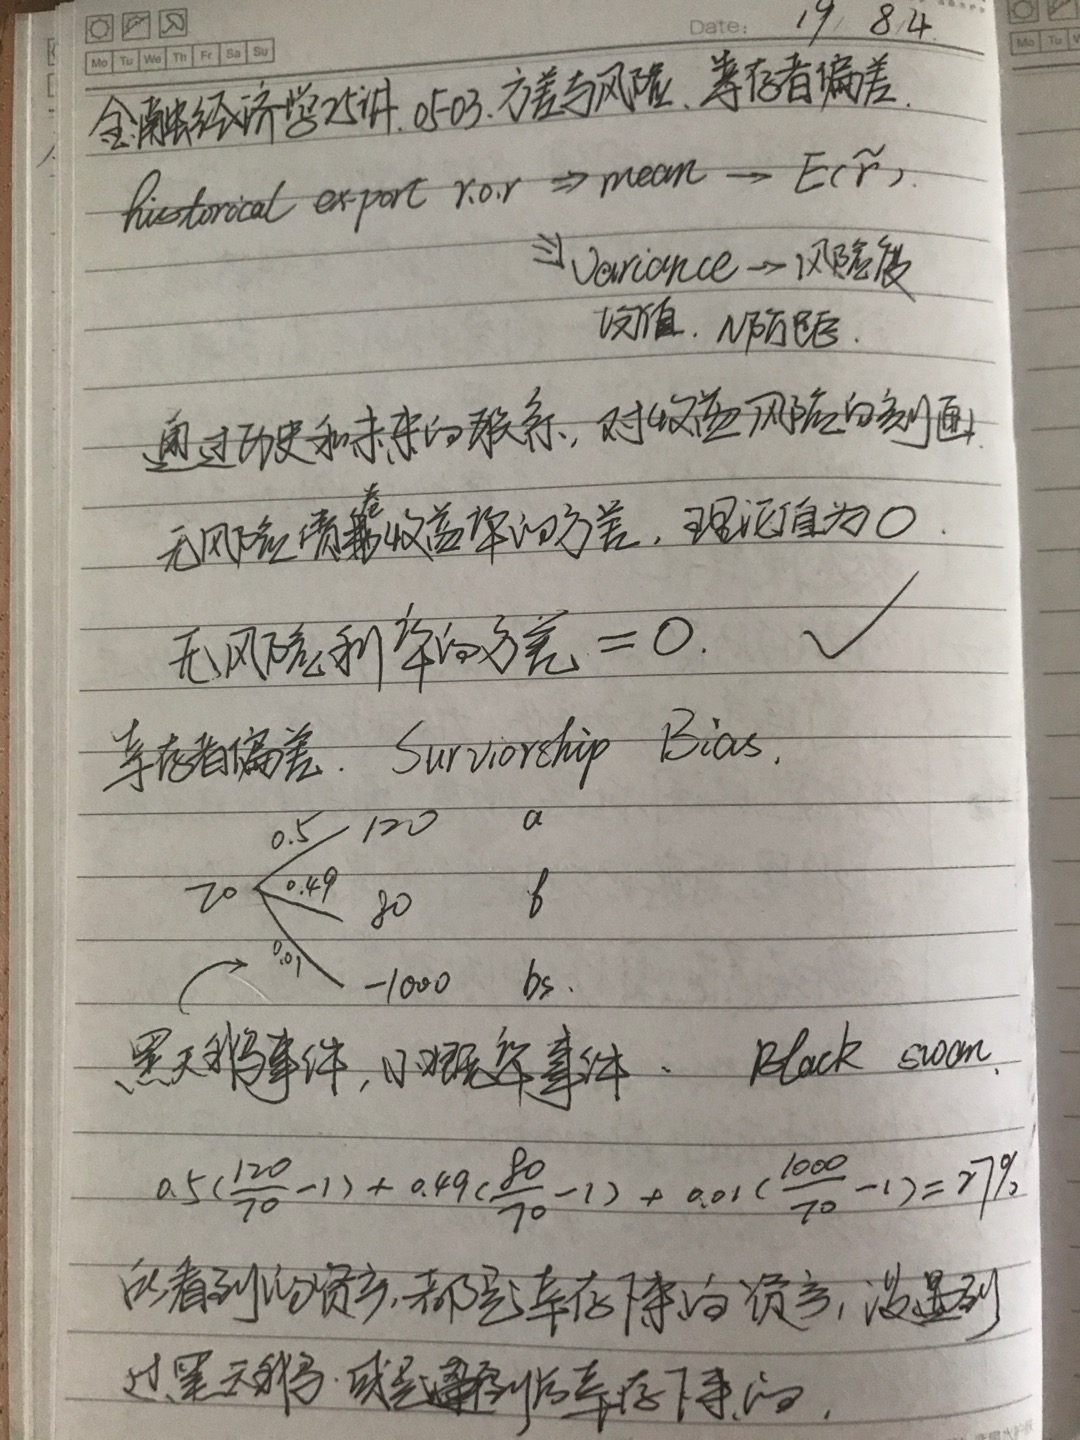 Date: 19/ 8/4.
Mo Tu We Th Fr Sa Su
金融经济学25讲. 05-03. 方差与风险、幸存者偏差.
historical export r.o.r ⇒ mean → E(r̃).
⇒ Variance → 风险
通过历史和未来的联系, 对收益风险的刻画.
无风险债券收益率的方差, 理论值为0.
无风险利率的方差 = 0. ✓
幸存者偏差. Surviorship Bias.
0.5 120 a
70 0.49 80 f
0.01 -1000 bs.
黑天鹅事件, 小概率事件. Black swan.
0.5(120/70 -1) + 0.49(80/70 -1) + 0.01(1000/70 -1) = 27%
所看到的资产, 都是幸存下来的资产, 没遇到
过黑天鹅. 或是遇到后幸存下来的.